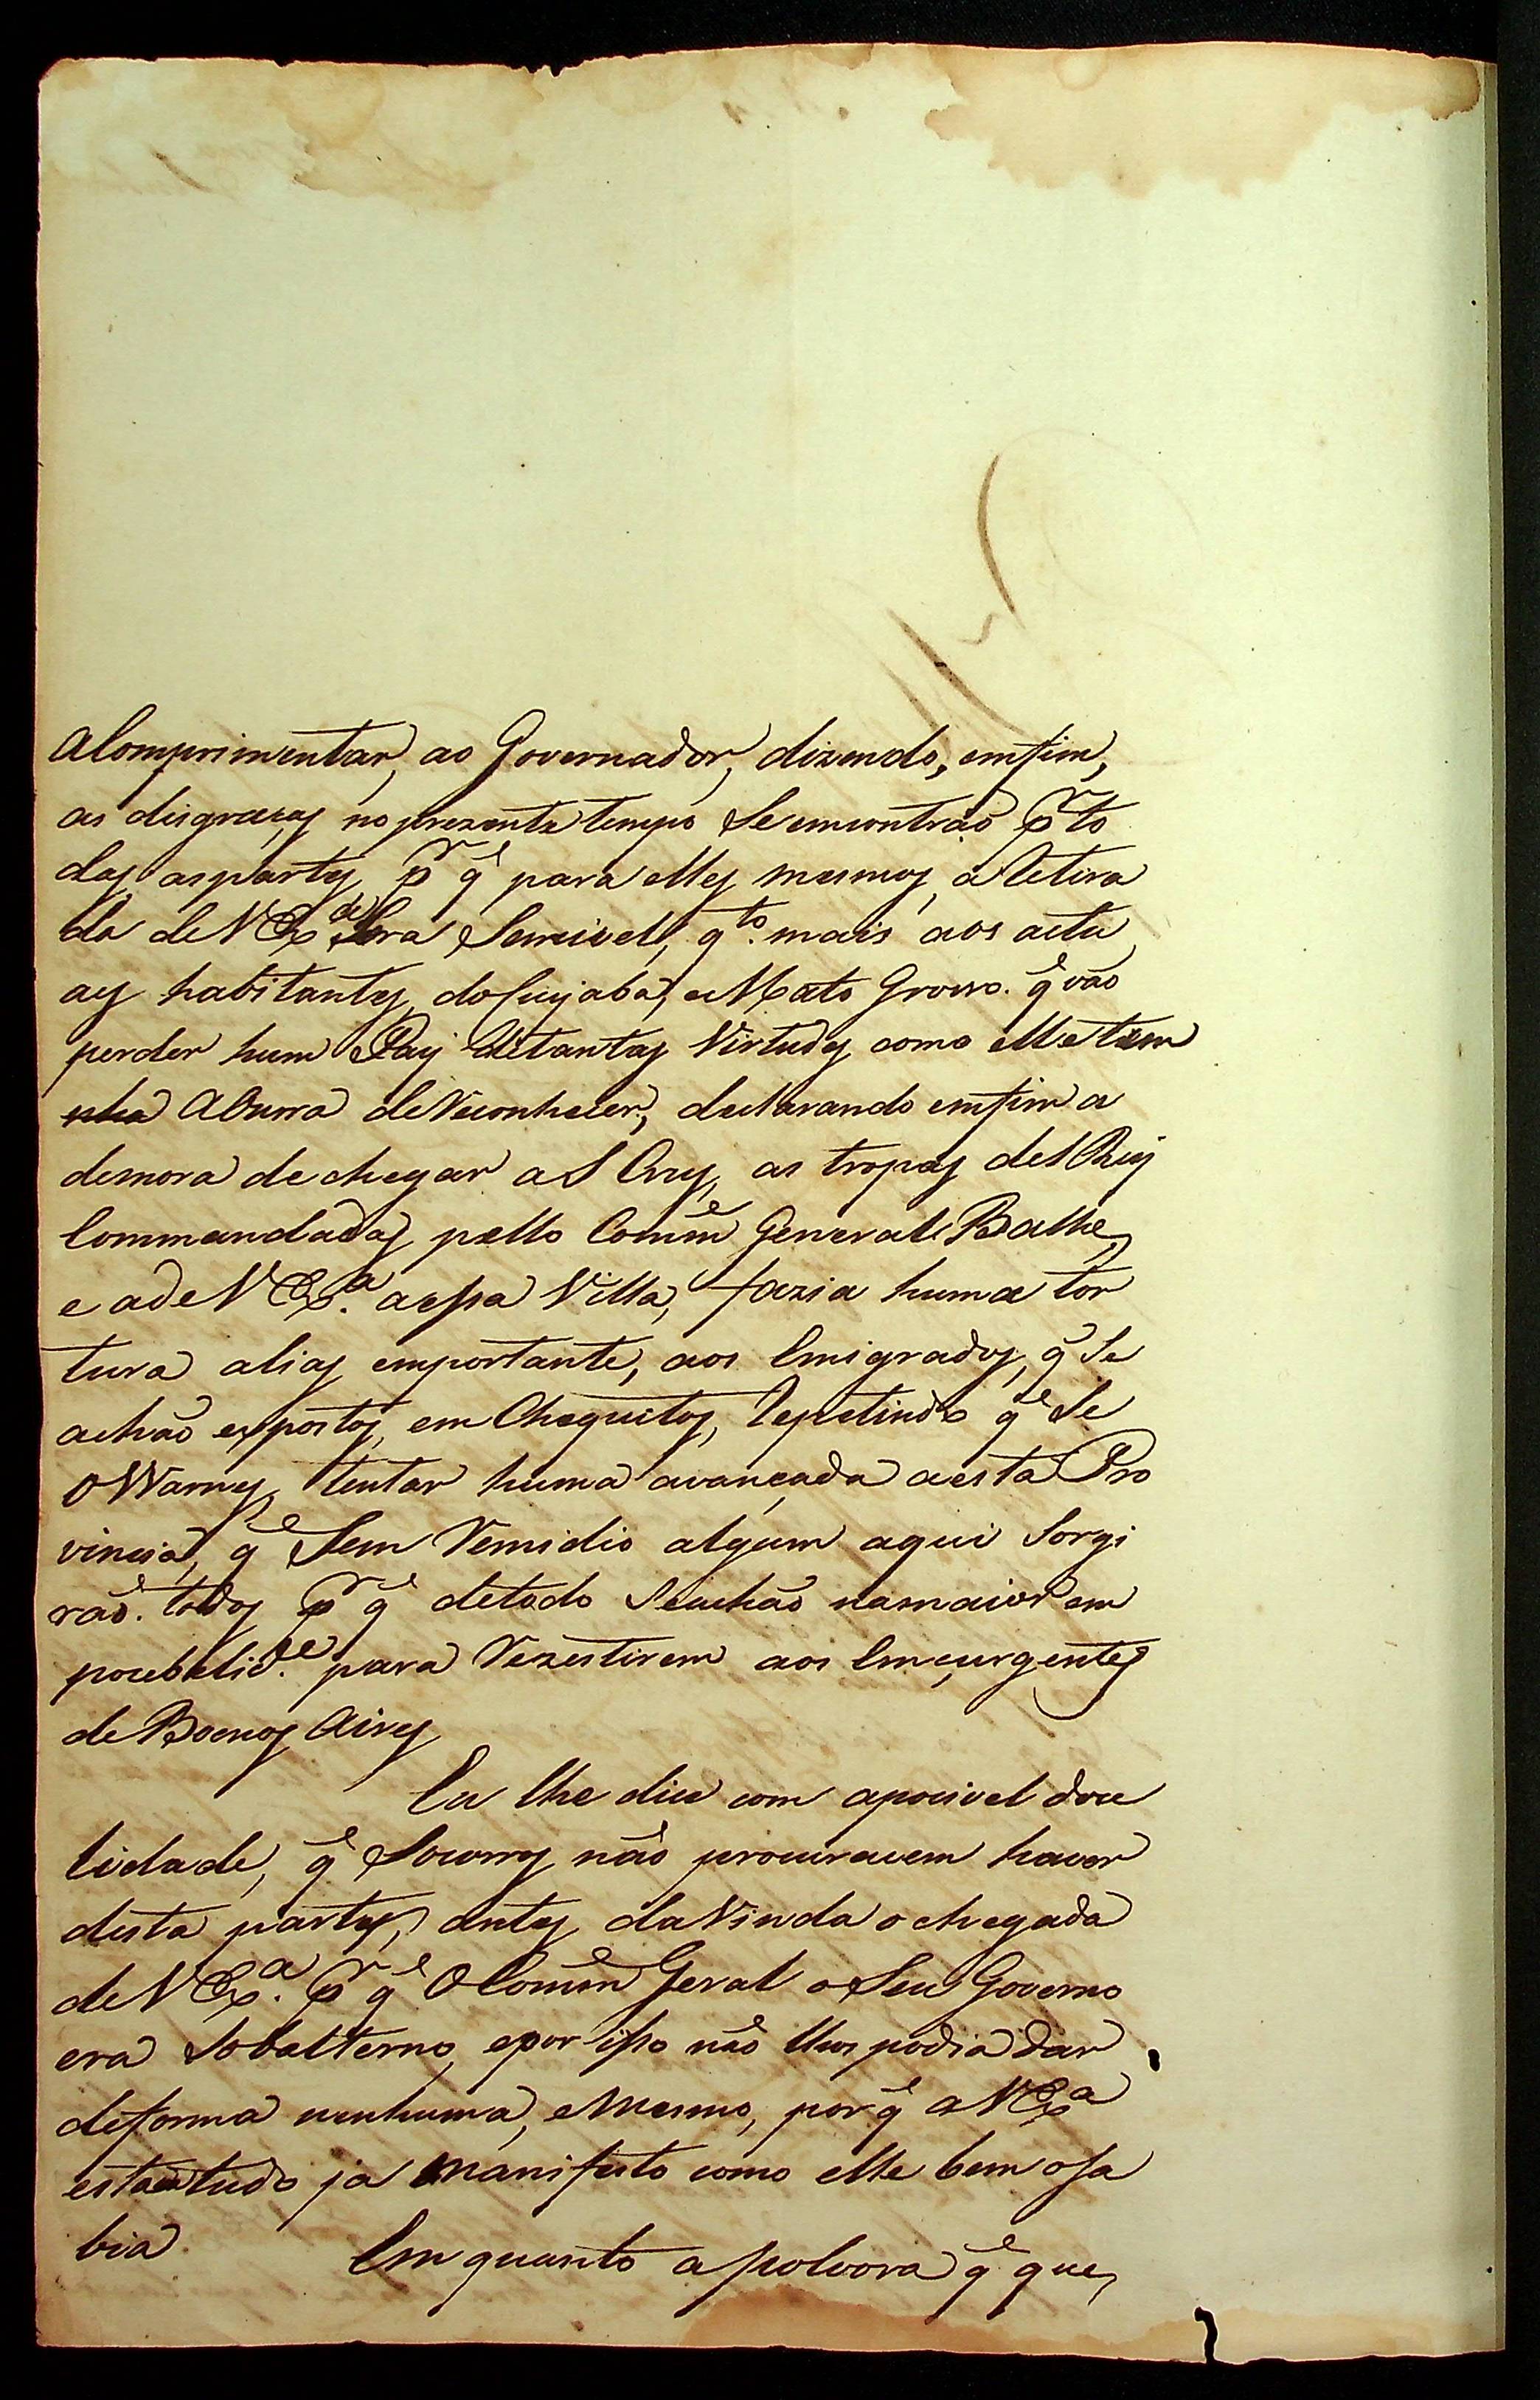 aComprimentar, ao Governador, dizendo, emfim,
as disgraças no prezente tempo Se emcontraõ pr to
das aspartes, pr q̃ para elles mesmos, a Retira
da de V Exa Sera Sencivel, qto. mais aos actu
aes habitantes, do Cuyabá, e Mato Groso. q̃ vaõ
perder hum Pay detantas Virtudes, como elle tem
aOnrra deReconhecer, declarando emfim a
demora de chegar a S Cruz, as tropas del Rey
Commandadas pello Comẽ General
e adeV Exa. aessa Villa, fazia huma tor
tura alias emportante, aos Emigrados, q̃ Se
achaõ espostos, em Chequitos, Repetindo q̃ Se
OWarnes, tentar huma avançada aesta Pro
vincia, q̃ Sem Remidio algum aqui Sorgi
raõ. todos pr q̃ detodo Seachaõ namaior em
pocebelide. para Rezestirem aos Emçurgentes
de Boenos Aires
Eu lhe dice com apocivel doce
lidade, q̃ Socorros naõ procuracem haver
desta partes, antes daVinda o chegada
de V Exa. pr q̃ O Comẽ Geral o Seu Governo
era Sobalterno, epor isso naõ lhos podia dar
deforma nenhuma, eMesmo, por q̃ a V Exa
está tudo ja manifesto como elle bem osa
bia.
Em quanto apolvora q̃ que,